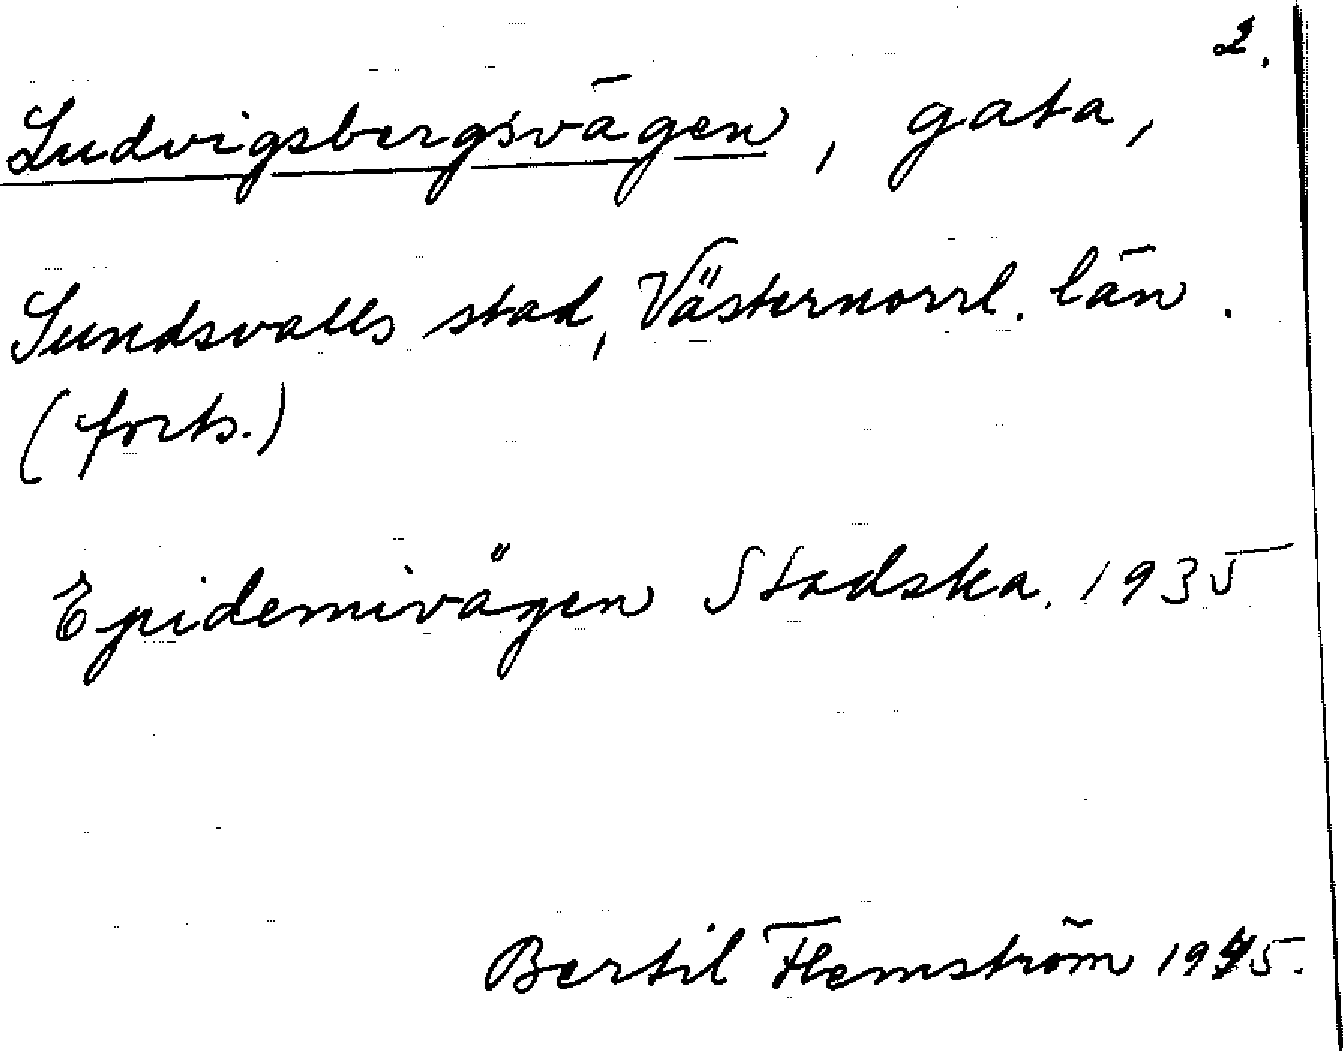 2.
Ludvigsbergsvägen, gata,
Sundsvalls stad, Västernorrl. län.
(forts.)
Epidemivägen Stadska. 1935
Bertil Flemström 1975.